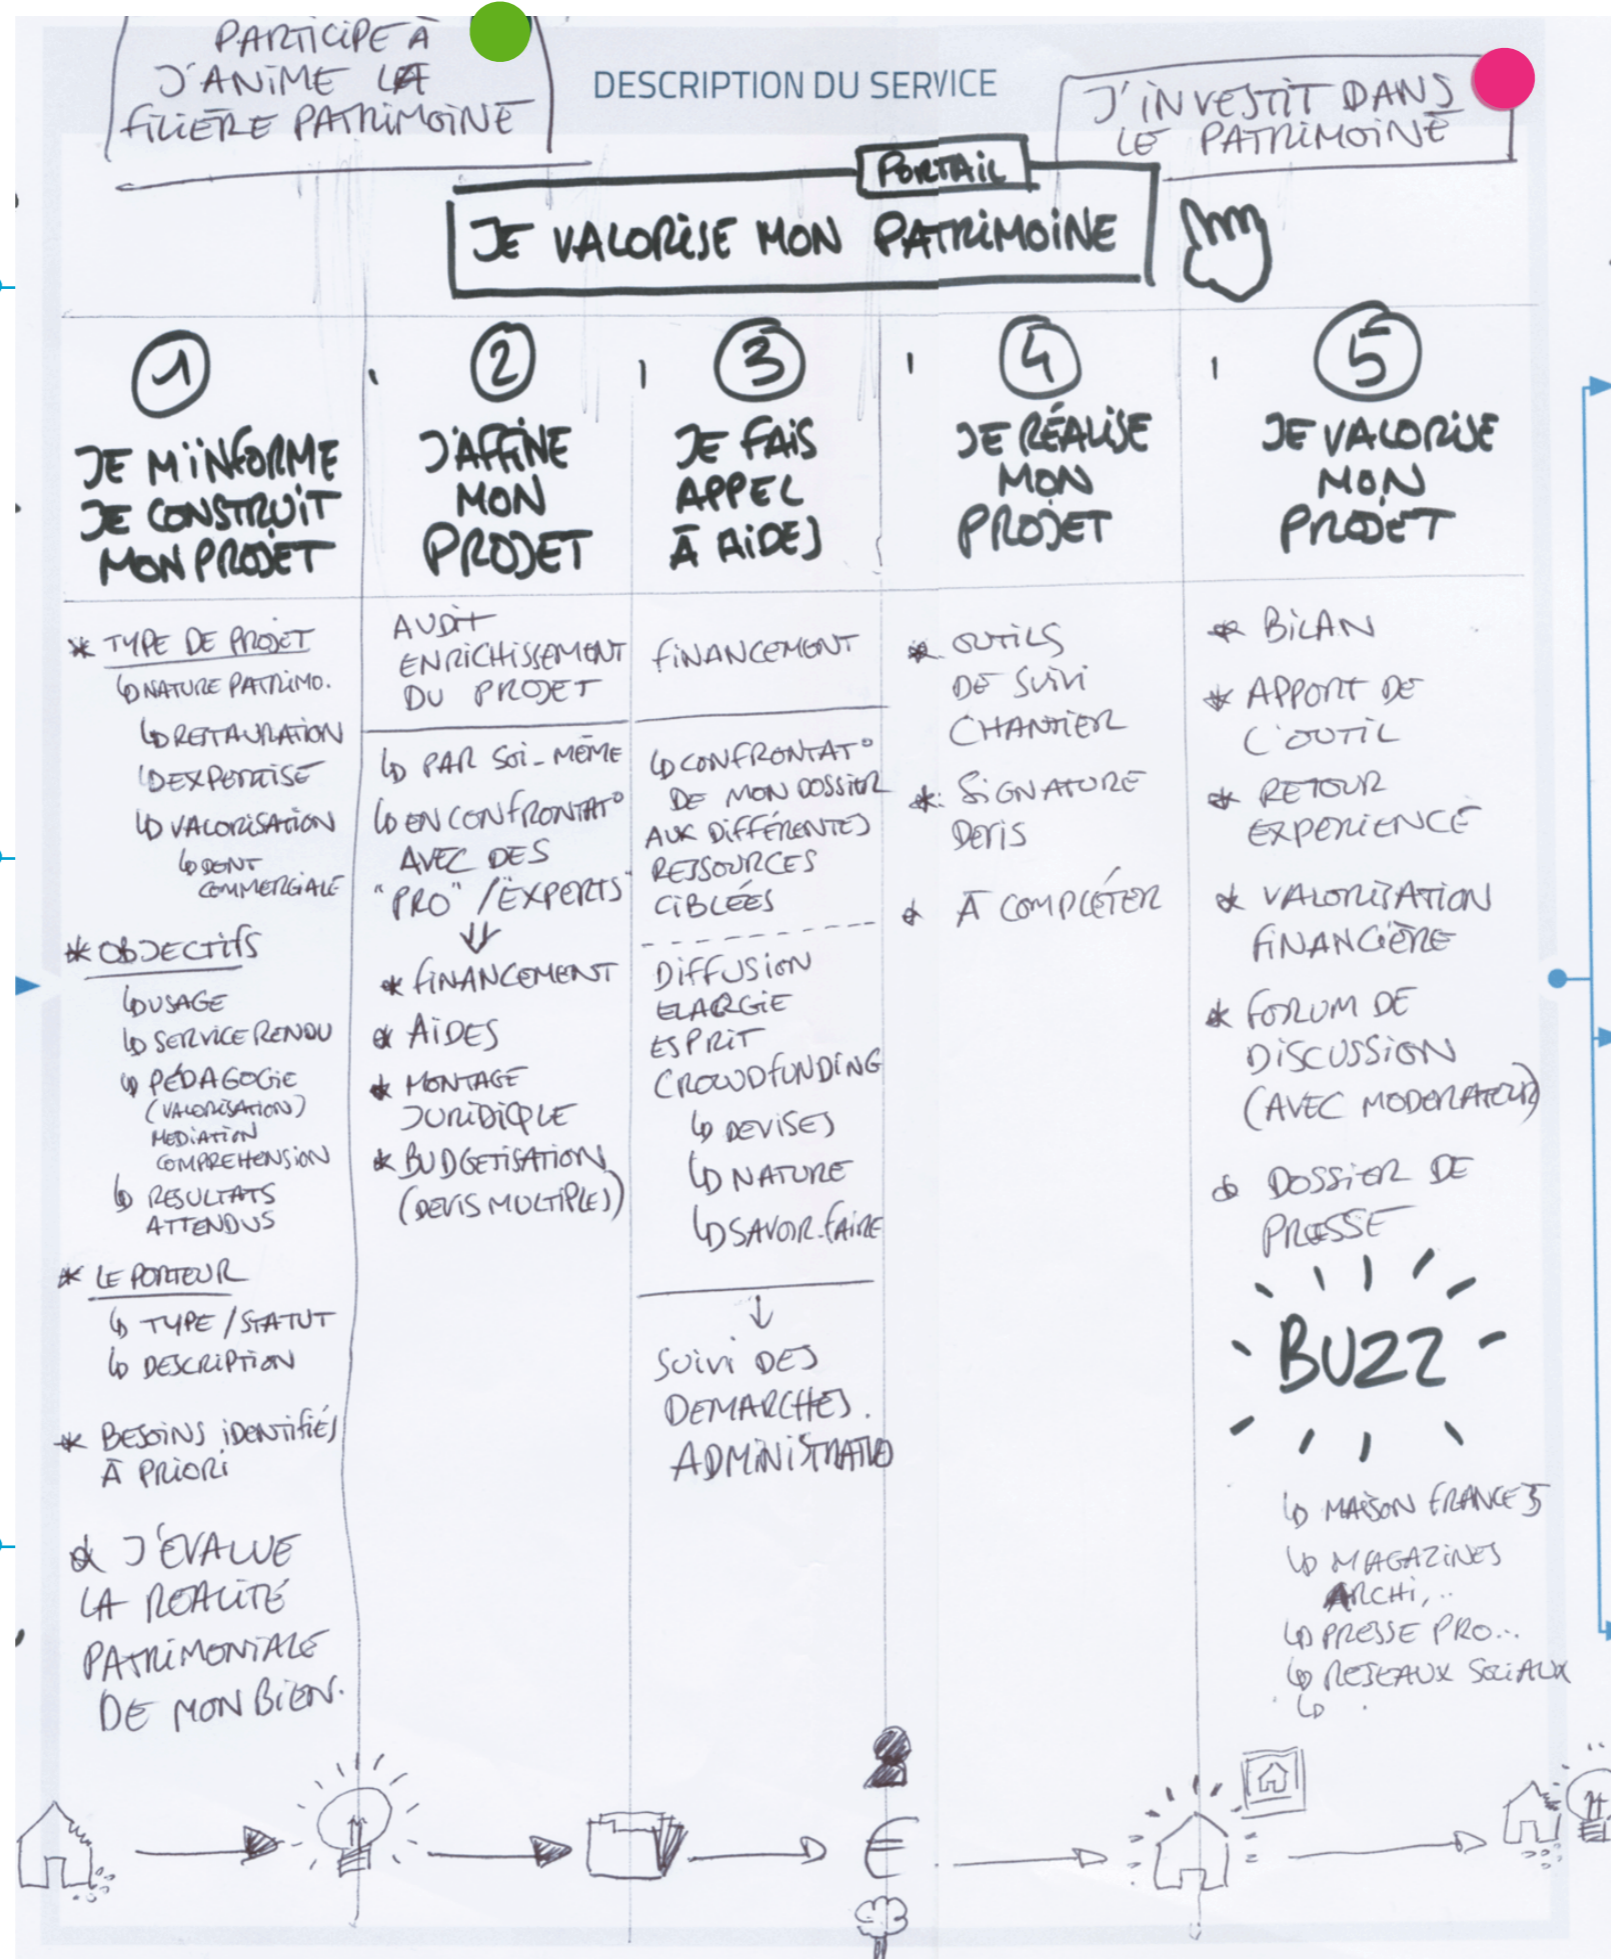 PARTICIPE À
J'ANIME LA
FILIÈRE PATRIMOINE
DESCRIPTION DU SERVICE
J'INVESTIT DANS
LE PATRIMOINE
PORTAIL
JE VALORISE MON PATRIMOINE
1
JE M'INFORME
JE CONSTRUIT
MON PROJET
* TYPE DE PROJET
NATURE PATRIMO.
RESTAURATION
EXPERTISE
VALORISATION
DONT
COMMERCIALE
* OBJECTIFS
USAGE
SERVICE RENDU
PÉDAGOGIE
(VALORISATION)
MEDIATION
COMPREHENSION
RESULTATS
ATTENDUS
* LE PORTEUR
TYPE / STATUT
DESCRIPTION
* BESOINS IDENTIFIÉS
À PRIORI
* J'ÉVALUE
LA RÉALITÉ
PATRIMONIALE
DE MON BIEN.
2
J'AFFINE
MON
PROJET
AUDIT
ENRICHISSEMENT
DU PROJET
PAR SOI-MÊME
EN CONFRONTAT°
AVEC DES
"PRO" / EXPERTS
* FINANCEMENT
* AIDES
* MONTAGE
JURIDIQUE
* BUDGETISATION
(DEVIS MULTIPLES)
3
JE FAIS
APPEL
À AIDES
FINANCEMENT
CONFRONTAT°
DE MON DOSSIER
AUX DIFFÉRENTES
RESSOURCES
CIBLÉES
DIFFUSION
ELARGIE
ESPRIT
CROWDFUNDING
DEVISES
NATURE
SAVOIR-FAIRE
SUIVI DES
DEMARCHES.
ADMINISTRATIV
4
JE RÉALISE
MON
PROJET
* OUTILS
DE SUIVI
CHANTIER
* SIGNATURE
DEVIS
* À COMPLÉTER
5
JE VALORISE
MON
PROJET
* BILAN
* APPORT DE
L'OUTIL
* RETOUR
EXPERIENCE
* VALORISATION
FINANCIÈRE
* FORUM DE
DISCUSSION
(AVEC MODERATEUR)
* DOSSIER DE
PRESSE
BUZZ
MAISON FRANCE 5
MAGAZINES
ARCHI, ..
PRESSE PRO...
RESEAUX SOCIAUX
€